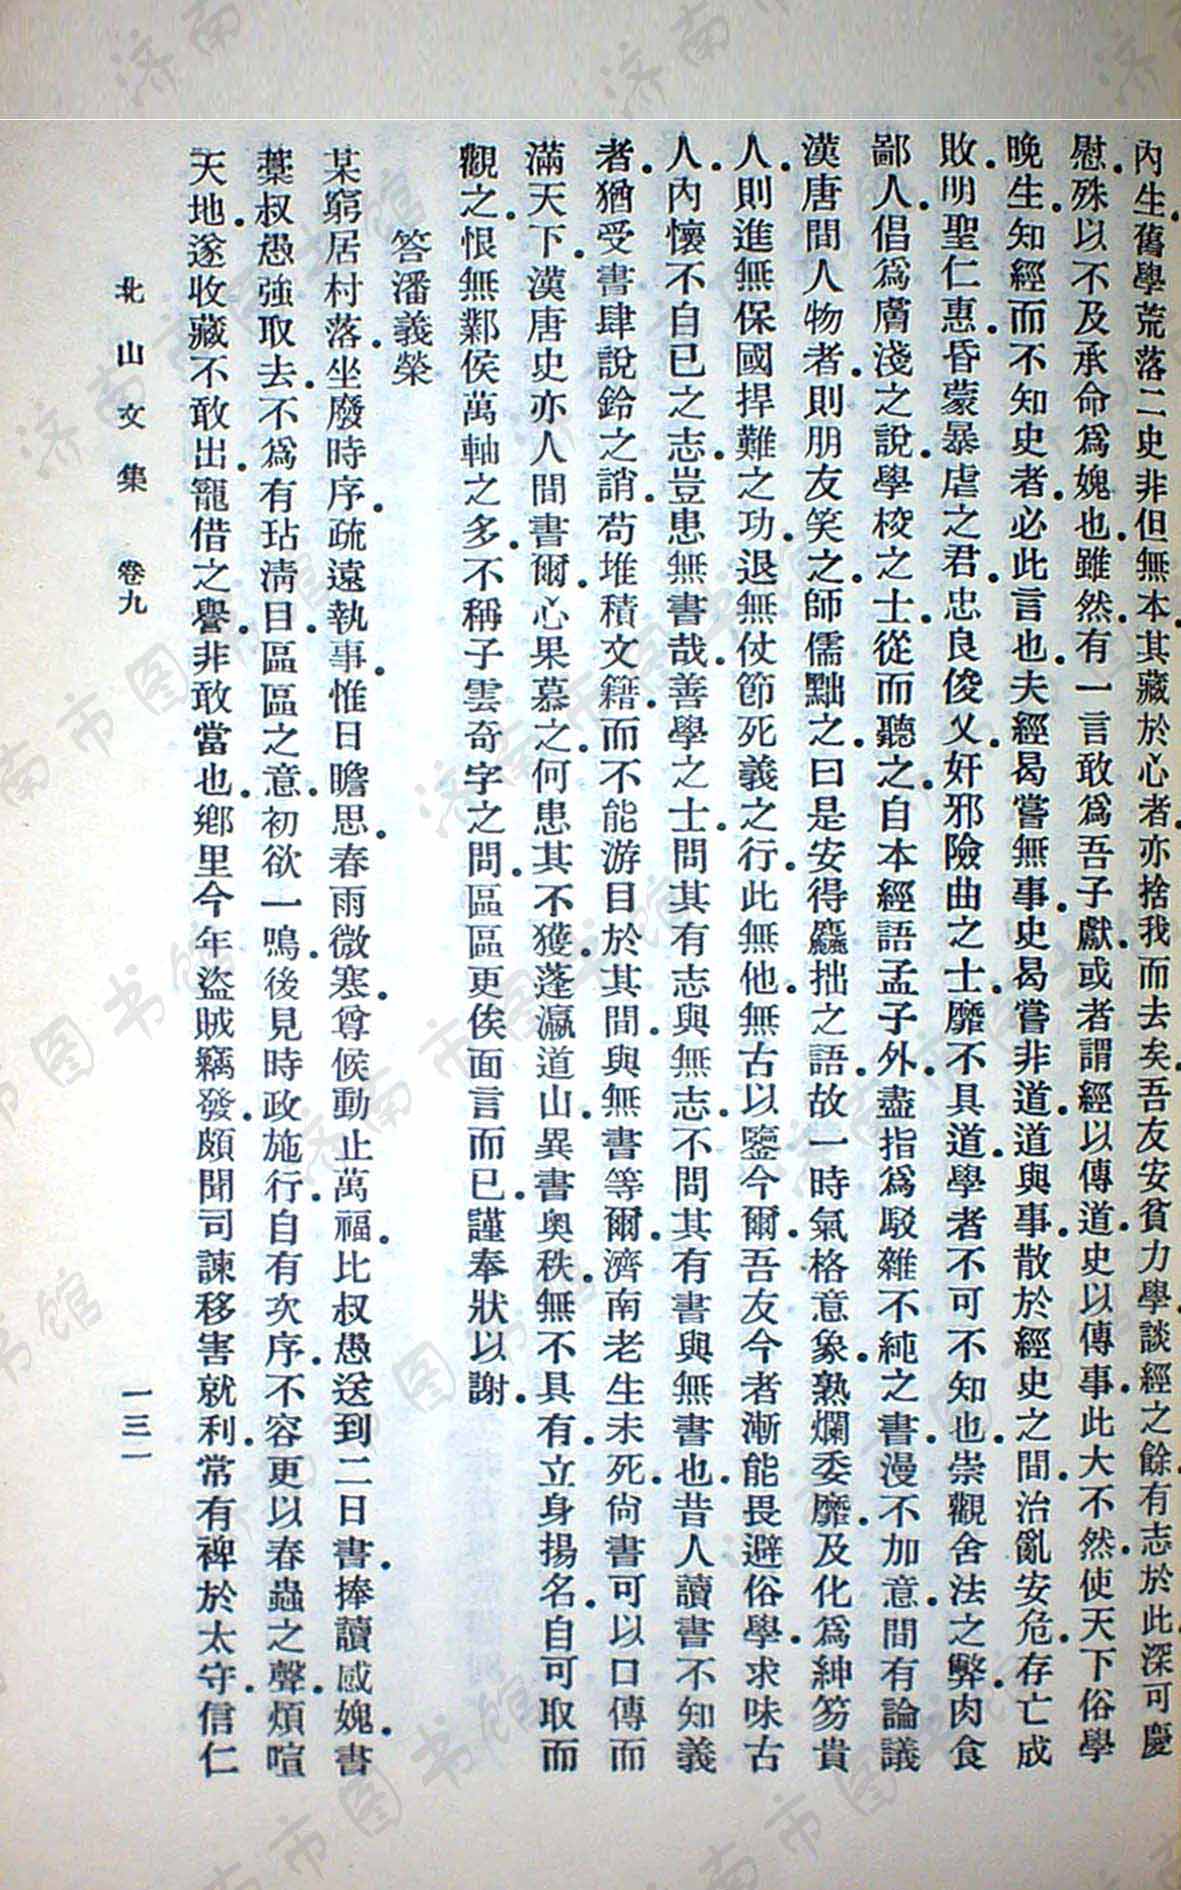 內生.舊學荒落二史非但無本.其藏於心者.亦捨我而去矣.吾友安貧力學.談經之餘.有志於此.深可慶
慰.殊以不及承命爲媿也.雖然.有一言敢爲吾子獻.或者謂經以傳道.史以傳事.此大不然.使天下俗學
晚生.知經而不知史者.必此言也.夫經曷嘗無事.史曷嘗非道.道與事散於經史之間.治亂安危.存亡成
敗.明聖仁惠.昏蒙暴虐之君.忠良俊乂.奸邪險曲之士.靡不具.道學者不可不知也.崇觀舍法之弊.肉食
鄙人.倡爲膚淺之說.學校之士.從而聽之.自本經語孟子外.盡指爲駁雜不純之書.漫不加意.間有論議
漢唐間人物者.則朋友笑之.師儒黜之.曰是安得麤拙之語.故一時氣格意象.熟爛委靡.及化爲紳笏貴
人.則進無保國捍難之功.退無仗節死義之行.此無他.無古以鑒今爾.吾友今者漸能畏避俗學.求味古
人.內懷不自已之志.豈患無書哉.善學之士.問其有志與無志.不問其有書與無書也.昔人讀書不知義
者.猶受書肆說鈴之誚.苟堆積文籍.而不能游目於其間.與無書等爾.濟南老生未死.尙書可以口傳.而
滿天下.漢唐史亦人間書爾.心果慕之.何患其不獲.蓬瀛道山.異書奧秩.無不具有.立身揚名.自可取而
觀之.恨無鄴侯萬軸之多.不稱子雲奇字之問.區區更俟面言而已.謹奉狀以謝.
答潘義榮
某窮居村落.坐廢時序.疏遠執事.惟日瞻思.春雨微寒.尊候動止萬福.比叔愚送到二日書.捧讀感媿.書
藁叔愚強取去.不爲有玷淸目.區區之意.初欲一鳴.後見時政施行.自有次序.不容更以春蟲之聲.煩喧
天地.遂收藏不敢出.寵借之譽.非敢當也.鄉里今年盜賊竊發.頗聞司諫移害就利.常有裨於太守.信仁
北山文集 卷九 一三一